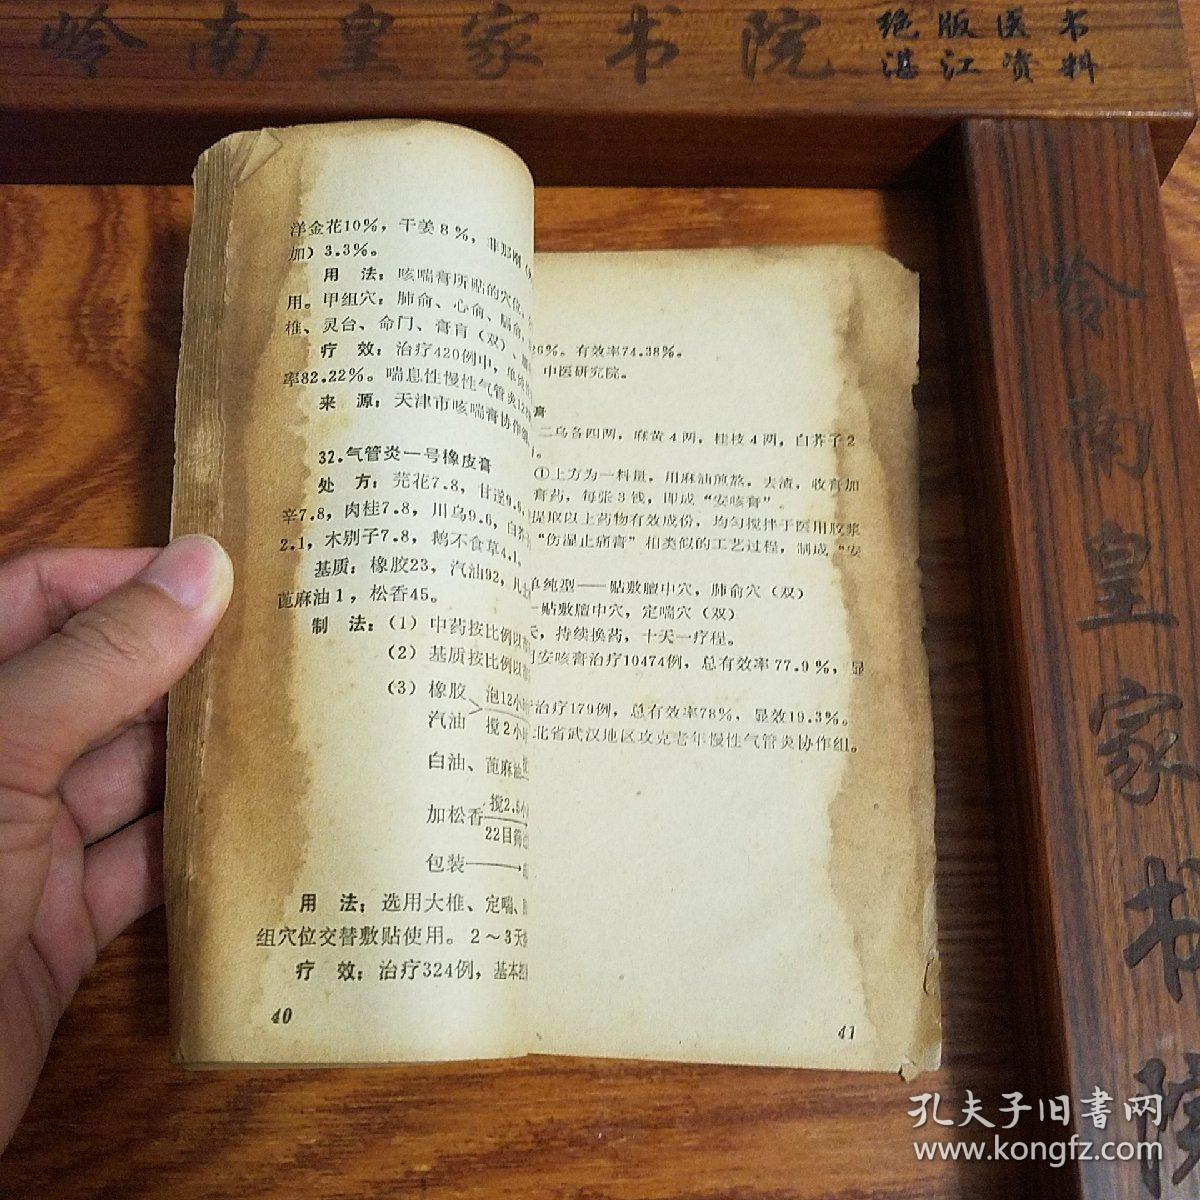 岭南皇家书院
绝版医书
湛江资料
洋金花10%，干姜8%，非那刚
加）3.3%。
用 法：咳喘膏所贴的穴位，
用。甲组穴：肺俞、心俞、膈俞，
椎、灵台、命门、膏肓（双）、
疗 效：治疗420例中，单纯
率82.22%。喘息性慢性气管炎12
来 源：天津市咳喘膏协作组
32.气管炎一号橡皮膏
处 方：芫花7.8，甘遂9.6，
辛7.8，肉桂7.8，川乌9.6，白芥
2.1，木别子7.8，鹅不食草4.1，
基质：橡胶23，汽油92，
蓖麻油1，松香45。
制 法：（1）中药按比例以
（2）基质按比例以
（3）橡胶 泡12小时
汽油 搅2小时
白油、蓖麻油
加松香 搅2.5小
22目筛
包装
用 法：选用大椎、定喘、
组穴位交替敷贴使用。2～3天
疗 效：治疗324例，基本控
40
26%。有效率74.38%。
中医研究院。
膏
二乌各四两，麻黄4两，桂枝4两，白芥子2
①上方为一料量，用麻油煎熬，去渣，收膏加
膏药，每张3钱，即成“安咳膏”。
提取以上药物有效成份，均匀搅拌于医用胶浆
“伤湿止痛膏”相类似的工艺过程，制成“安
单纯型——贴敷膻中穴，肺俞穴（双）
—贴敷膻中穴，定喘穴（双）
天，持续换药，十天一疗程。
安咳膏治疗10474例，总有效率77.9%，显
治疗179例，总有效率78%、显效19.3%。
北省武汉地区攻克老年慢性气管炎协作组。
41
岭南皇家书院
孔夫子旧書网
www.kongfz.com